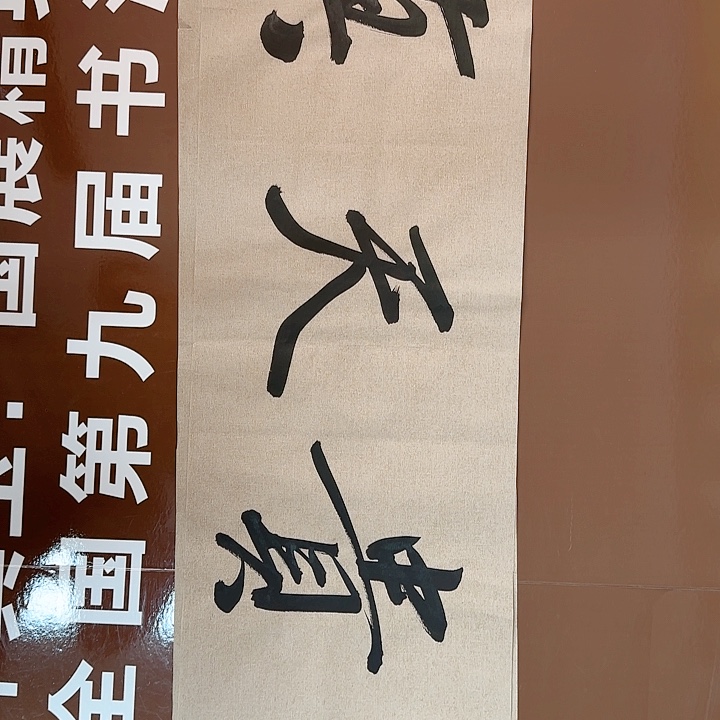 国展精
全国第九届书
貴天